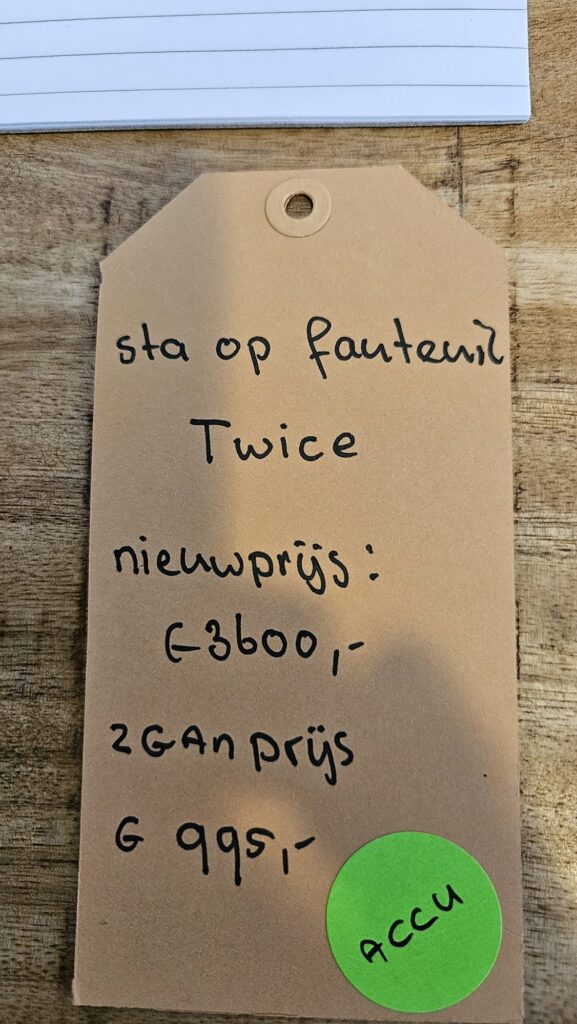 sta op fauteuil
Twice
nieuwprijs:
€ 3600,-
ZGAn prijs
€ 995,-
ACCU